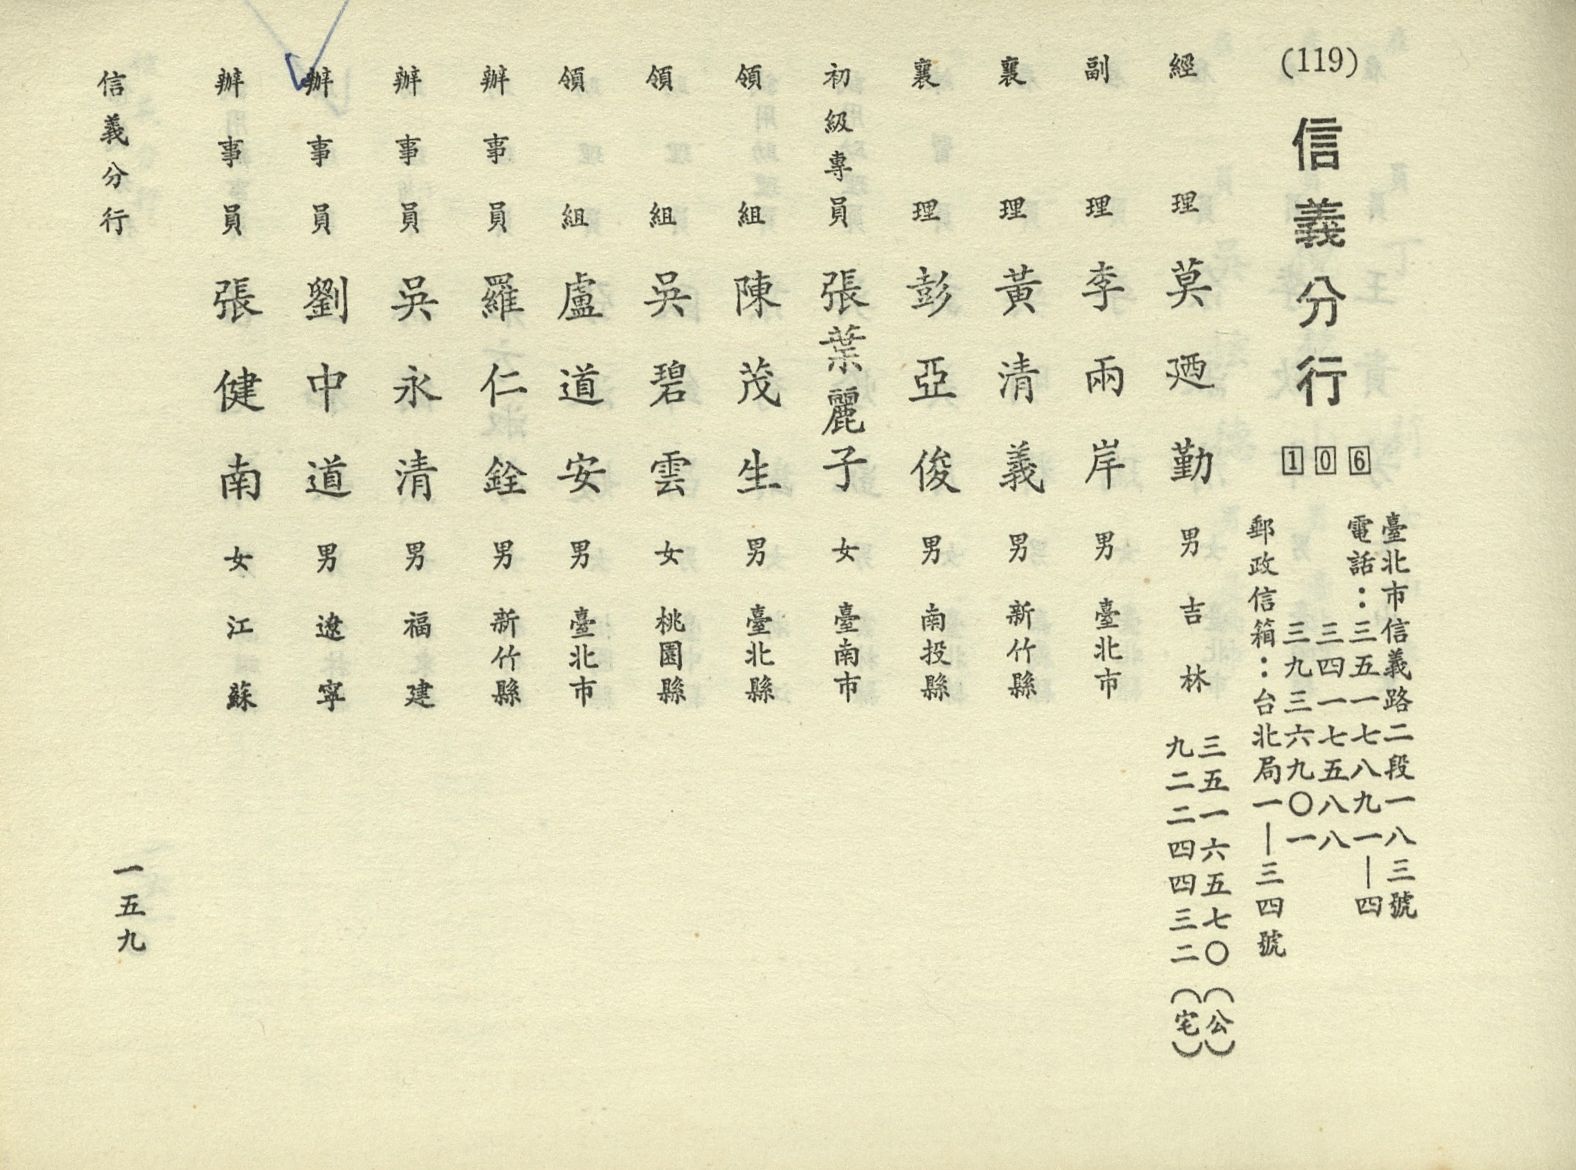 (119)
信義分行
106
臺北市信義路二段一八三號
電話：三五一七八九一—四
三四一七五八八
三九三六九〇一
郵政信箱：台北局一—三四號
經理 莫迺勤 男 吉林 三五一六五七〇（公）
九二二四四三二（宅）
副理 李兩岸 男 臺北市
襄理 黃清義 男 新竹縣
襄理 彭亞俊 男 南投縣
初級專員 張葉麗子 女 臺南市
領組 陳茂生 男 臺北縣
領組 吳碧雲 女 桃園縣
領組 盧道安 男 臺北市
辦事員 羅仁銓 男 新竹縣
辦事員 吳永清 男 福建
辦事員 劉中道 男 遼寧
辦事員 張健南 女 江蘇
信義分行
一五九